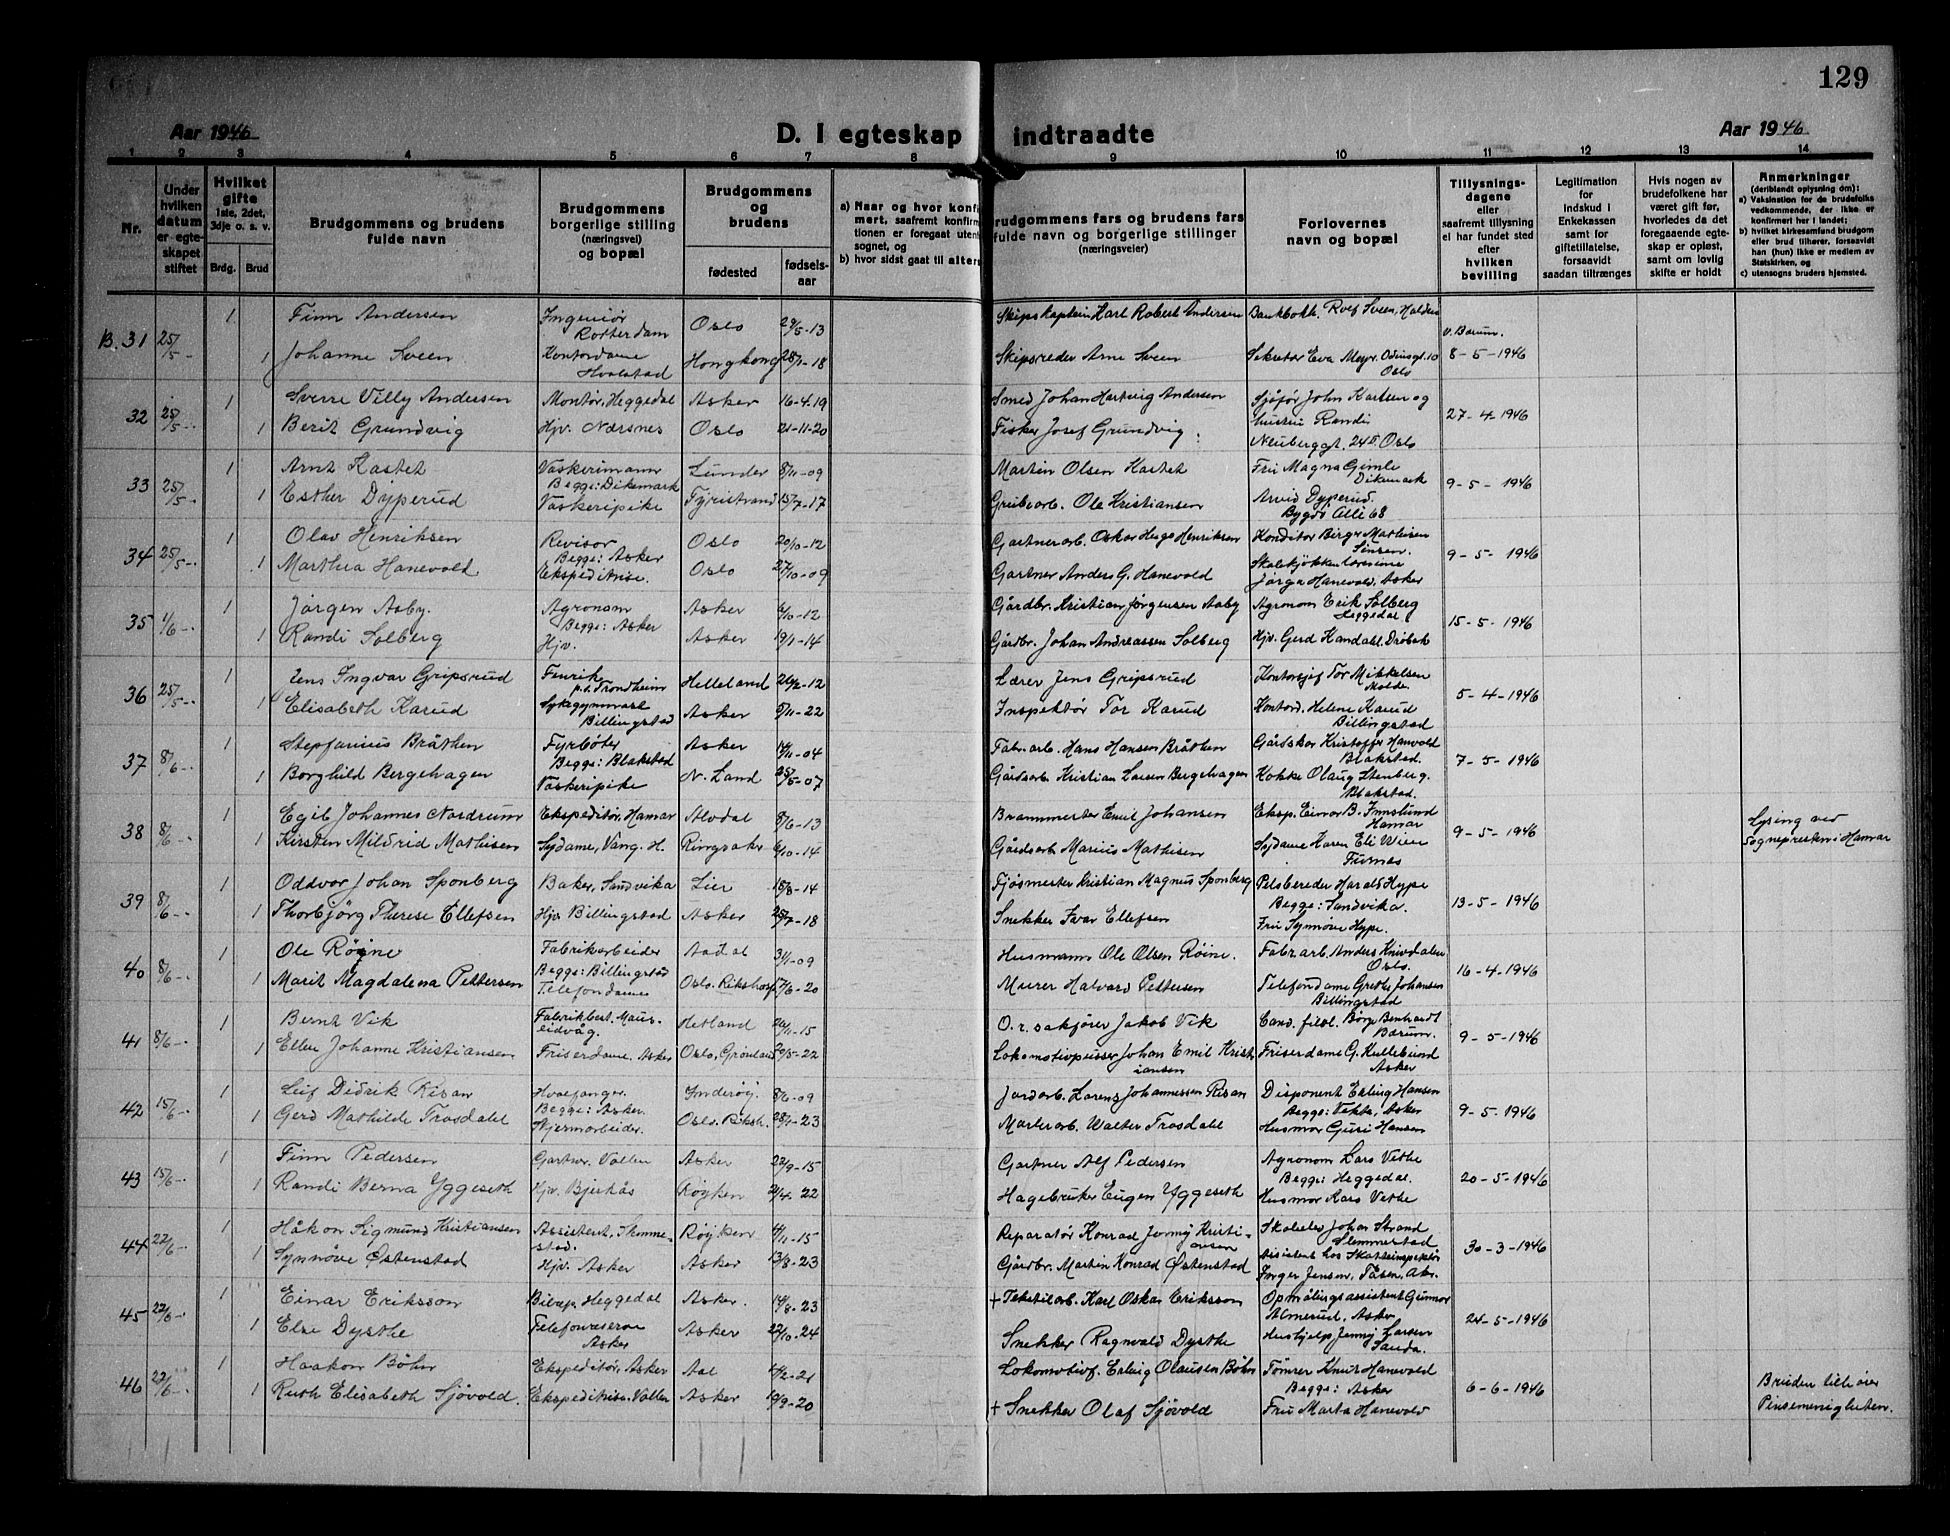 129
Aar 1946
D. I egteskap indtraadte
Aar 1946
1 2 3 4 5 6 7 8 9 10 11 12 13 14
Nr.
Under hvilken datum er egteskapet stiftet
Hvilket gifte
1ste, 2det, 3dje o. s. v.
Brdg. Brud
Brudgommens og brudens fulde navn
Brudgommens borgerlige stilling (næringsvei) og bopæl
Brudgommens og brudens
fødested
fødselsaar
a) Naar og hvor konfi
mert, saafremt konfirm
tionen er foregaat utent
sognet, og
b) hvor sidst gaat til alters
rudgommens fars og brudens fars
fulde navn og borgerlige stillinger
(næringsveier)
Forlovernes
navn og bopæl
Tillysnings-
dagene
eller
saafremt tillysning
ei har fundet sted
efter
hvilken
bevilling
Legitimation
for
indskud i
Enkekassen
samt for
giftetillatelse,
forsaavidt
saadan tiltrænges
Hvis nogen av
brudefolkene har
været gift før,
hvorledes da det
foregaaende egte-
skap er opløst,
samt om lovlig
skifte er holdt
Anmerkninger
(deriblandt oplysning om):
a) Vaksination for de brudefolks vedkommende, der ikke er konfirmert her i landet;
b) hvilket kirkesamfund brudgom eller brud tilhører, forsaavidt han (hun) ikke er medlem av Statskirken, og
c) utensogns bruders hjemsted.
B. 31 25/5 - 1 Finn Andersen Ingeniør Rotterdam Oslo 29/5-13 Skipskaptein Karl Robert Andersen Bankbotk. Rolf Sveen, Halden
1 Johanne Sveen Kontordame Hvalstad Hongkong 28/7-18 Skipsreder Arne Sveen Sekretær Eva Meyr. Odinsgt. 10 Oslo v. Bærum. 8-5-1946
32 25/5 - 1 Sverre Villy Andersen Montør, Heggedal Asker 16-4-19 Smed Johan Hartvig Andersen Sjåfør John Karlsen og
1 Berit Grundvig Hjv. Nærsnes Oslo 21-11-20 Fisker Josef Grundvig hustru Randi Neuberggt. 24 II Oslo 27-4-1946
33 25/5 - 1 Arnt Kastet Vaskerimann Begge: Dikemark Lunder 8/11-09 Martin Olsen Kastet Fru Magna Gimle Dikemark
1 Esther Dyperud Vaskeripike Tyristrand 15/7-17 Grubearb. Ole Kristiansen Arvid Dyperud. Bygdø Allé 68 9-5-1946
34 25/5 - 1 Olav Henriksen Revisor Begge: Asker Oslo 20/10-12 Gartnerarb. Oskar Hugo Henriksen Konditor Birger Mathisen Sinsen.
1 Marthea Hanevold Ekspeditrise. Oslo 27/10-09 Gartner Anders G. Hanevold Skolekjøkkenlærerinne Jørga Hanevold, Asker 9-5-1946
35 1/6 - 1 Jørgen Aaby. Agronom Begge: Asker Asker 6/10-12 Gårdbr. Kristian Jørgensen Aaby Agronom Erik Solberg Heggedal
1 Randi Solberg Hjv. Asker 19/1-14 Gårdbr. Johan Andreassen Solberg Hjv. Gerd Kandahl. Drøbak 15-5-1946
36 25/5 - 1 Jens Ingvar Gripsrud Fenrik p.t. Trondheim Helleland 26/2-12 Lærer Jens Gripsrud Kontorsjef Tor Mikkelsen Molde
1 Elisabeth Karud Sykegymnast Billingstad Asker 5/11-22 Inspektør Tor Karud Kontord. Helene Karud Billingstad 5-4-1946
37 8/6 - 1 Stepfanius Bråthen Fyrbøter Begge: Blakstad Asker 14/11-04 Fabr. arb. Hans Hansen Bråthen Gårdskar Kristoffer Hanevold Blakstad.
1 Borghild Bergehagen Vaskeripike N. Land 25/5-07 Gårdsarb. Kristian Larsen Bergehagen Kokke Olaug Stenberg. Blakstad. 7-5-1946
38 8/6 - 1 Egil Johannes Nordrum Ekspeditør, Hamar Alvdal 8/6-13 Brannmester Emil Johansen Eksp. Einar B. Imislund Hamar
1 Kirsten Mildrid Mathisen Sydame, Vang. H. Ringsaker 6/10-14 Gårdsarb. Marius Mathisen Sydame Karen Eli Wien Furnes 9-5-1946 Lysing ved sognepresten i Hamar
39 8/6 - 1 Oddvar Johan Sponberg Baker, Sandvika Lier 18/8-14 Fjøsmester Kristian Magnus Sponberg Pelsbereder Harald Hype Begge: Sandvika.
1 Thorbjörg Therese Ellefsen Hjv Billingstad Asker 25/7-18 Snekker Ivar Ellefsen Fru Synnøve Hype. 13-5-1946
40 8/6 - 1 Ole Røine Fabrikarbeider Begge: Billingstad Aadal 3/1-09 Husmann Ole Olsen Røine. Fabr. arb. Anders Knivdalen Oslo.
1 Marit Magdalena Pettersen Telefondame Oslo. Rikshosp. 17/6-20 Murer Halvard Pettersen Telefondame Grethe Johansen Billingstad 16-4-1946
41 8/6 - 1 Bernt Vik Hetland 26/11-15 O.r. sakfører Jakob Vik Cand. filol. Børge Benhardt Bærum.
1 Ellen Johanne Kristiansen Friserdame, Asker Oslo, Grønland 20/5-22 Lokomotivpusser Johan Emil Kristiansen Friserdame G. Kullebund Asker 9-5-1946
42 15/6 - 1 Leif Didrik Risan Hvalfanger. Begge: Asker. Inderøy. 8/6-09 Jordarb. Lorens Johannessen Risan Disponent Erling Hansen Begge: Vekta, Asker
1 Gerd Mathilde Trosdahl Hjemarbeider. Oslo. Riksh. 28/1-23 Murerarb. Walter Trosdahl Husmor Guri Hansen 9-5-1946
43 15/6 - 1 Finn Pedersen Gartner. Vollen Asker 22/9-15 Gartner Alf Pedersen Agronom Lars Vethe Begge: Heggedal.
1 Randi Berna Yggeseth Hjv. Bjerkås Røyken 21/4 22 Hagebruker Eugen Yggeseth Husmor Kars Vethe 20-5-1946
44 22/6 - 1 Håkon Sigmund Kristiansen Assistent, Slemmestad. Røyken 4/11-15 Reparatør Konrad Jonny Kristiansen Skoleelev Johan Strand Slemmestad
1 Synnøve Østenstad Hjv. Asker Asker 13/8-23 Gårdbr. Martin Konrad Østenstad Assistent hos Skatteinspektør Torger Jensen, Tåsen, Akr. 30-3-1946
45 22/6 - 1 Einar Eriksson Bileup. Heggedal Asker. 14/8-23 + Tekstilarb. Karl Oskar Eriksson Opmålingsassistent Gunnar Almerud, Asker
1 Else Dysthe Asker Asker 27/10-24 Snekker Ragnvald Dysthe Hushjelp Jenny Larsen Sauda. 24-5-1946
46 22/6 - 1 Haakon Böhn Ekspeditør, Asker Aal 4/2-21 Lokomotivf. Erling Olausen Böhn Tømrer Knut Hanevold Begge: Asker
1 Ruth Elisabeth Sjøvold. Ekspeditrise. Vollen Asker 19/9-20 + Snekker Olaf Sjøvold Fru Marta Hanevold 6-6-1946 Bruden tilhører Pinsemenigheten.